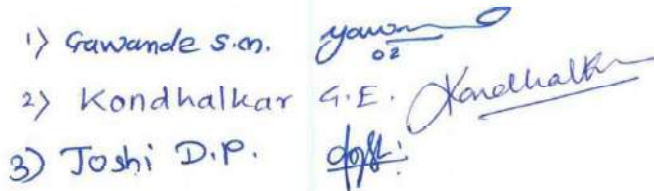 1) Gawande S.M.
02
2) Kondhalkar G.E. Kondhalkar
3) Joshi D.P.